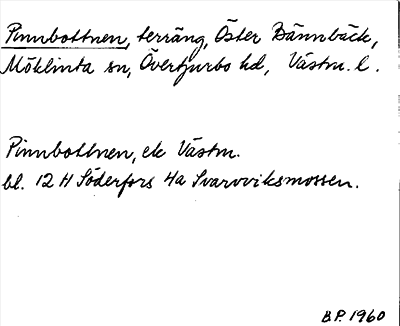 Pinnbottnen, terräng, Öster Bännbäck,
Möklinta sn, Övertjurbo hd, Västm. l.
Pinnbottnen, ek Västm.
bl. 12 H Söderfors 4a Svarvviksmossen.
B.P. 1960